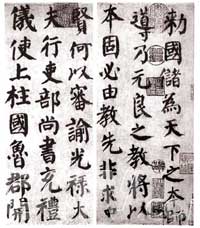 勑國儲為天下之本師
導乃元良之教將以
本固必由教先非求忠
賢何以審諭光祿大
夫行吏部尚書充禮
儀使上柱國魯郡開